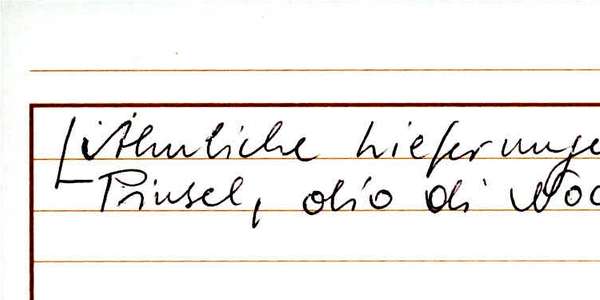 Ähnliche Lieferunge
Pinsel, olio di noc